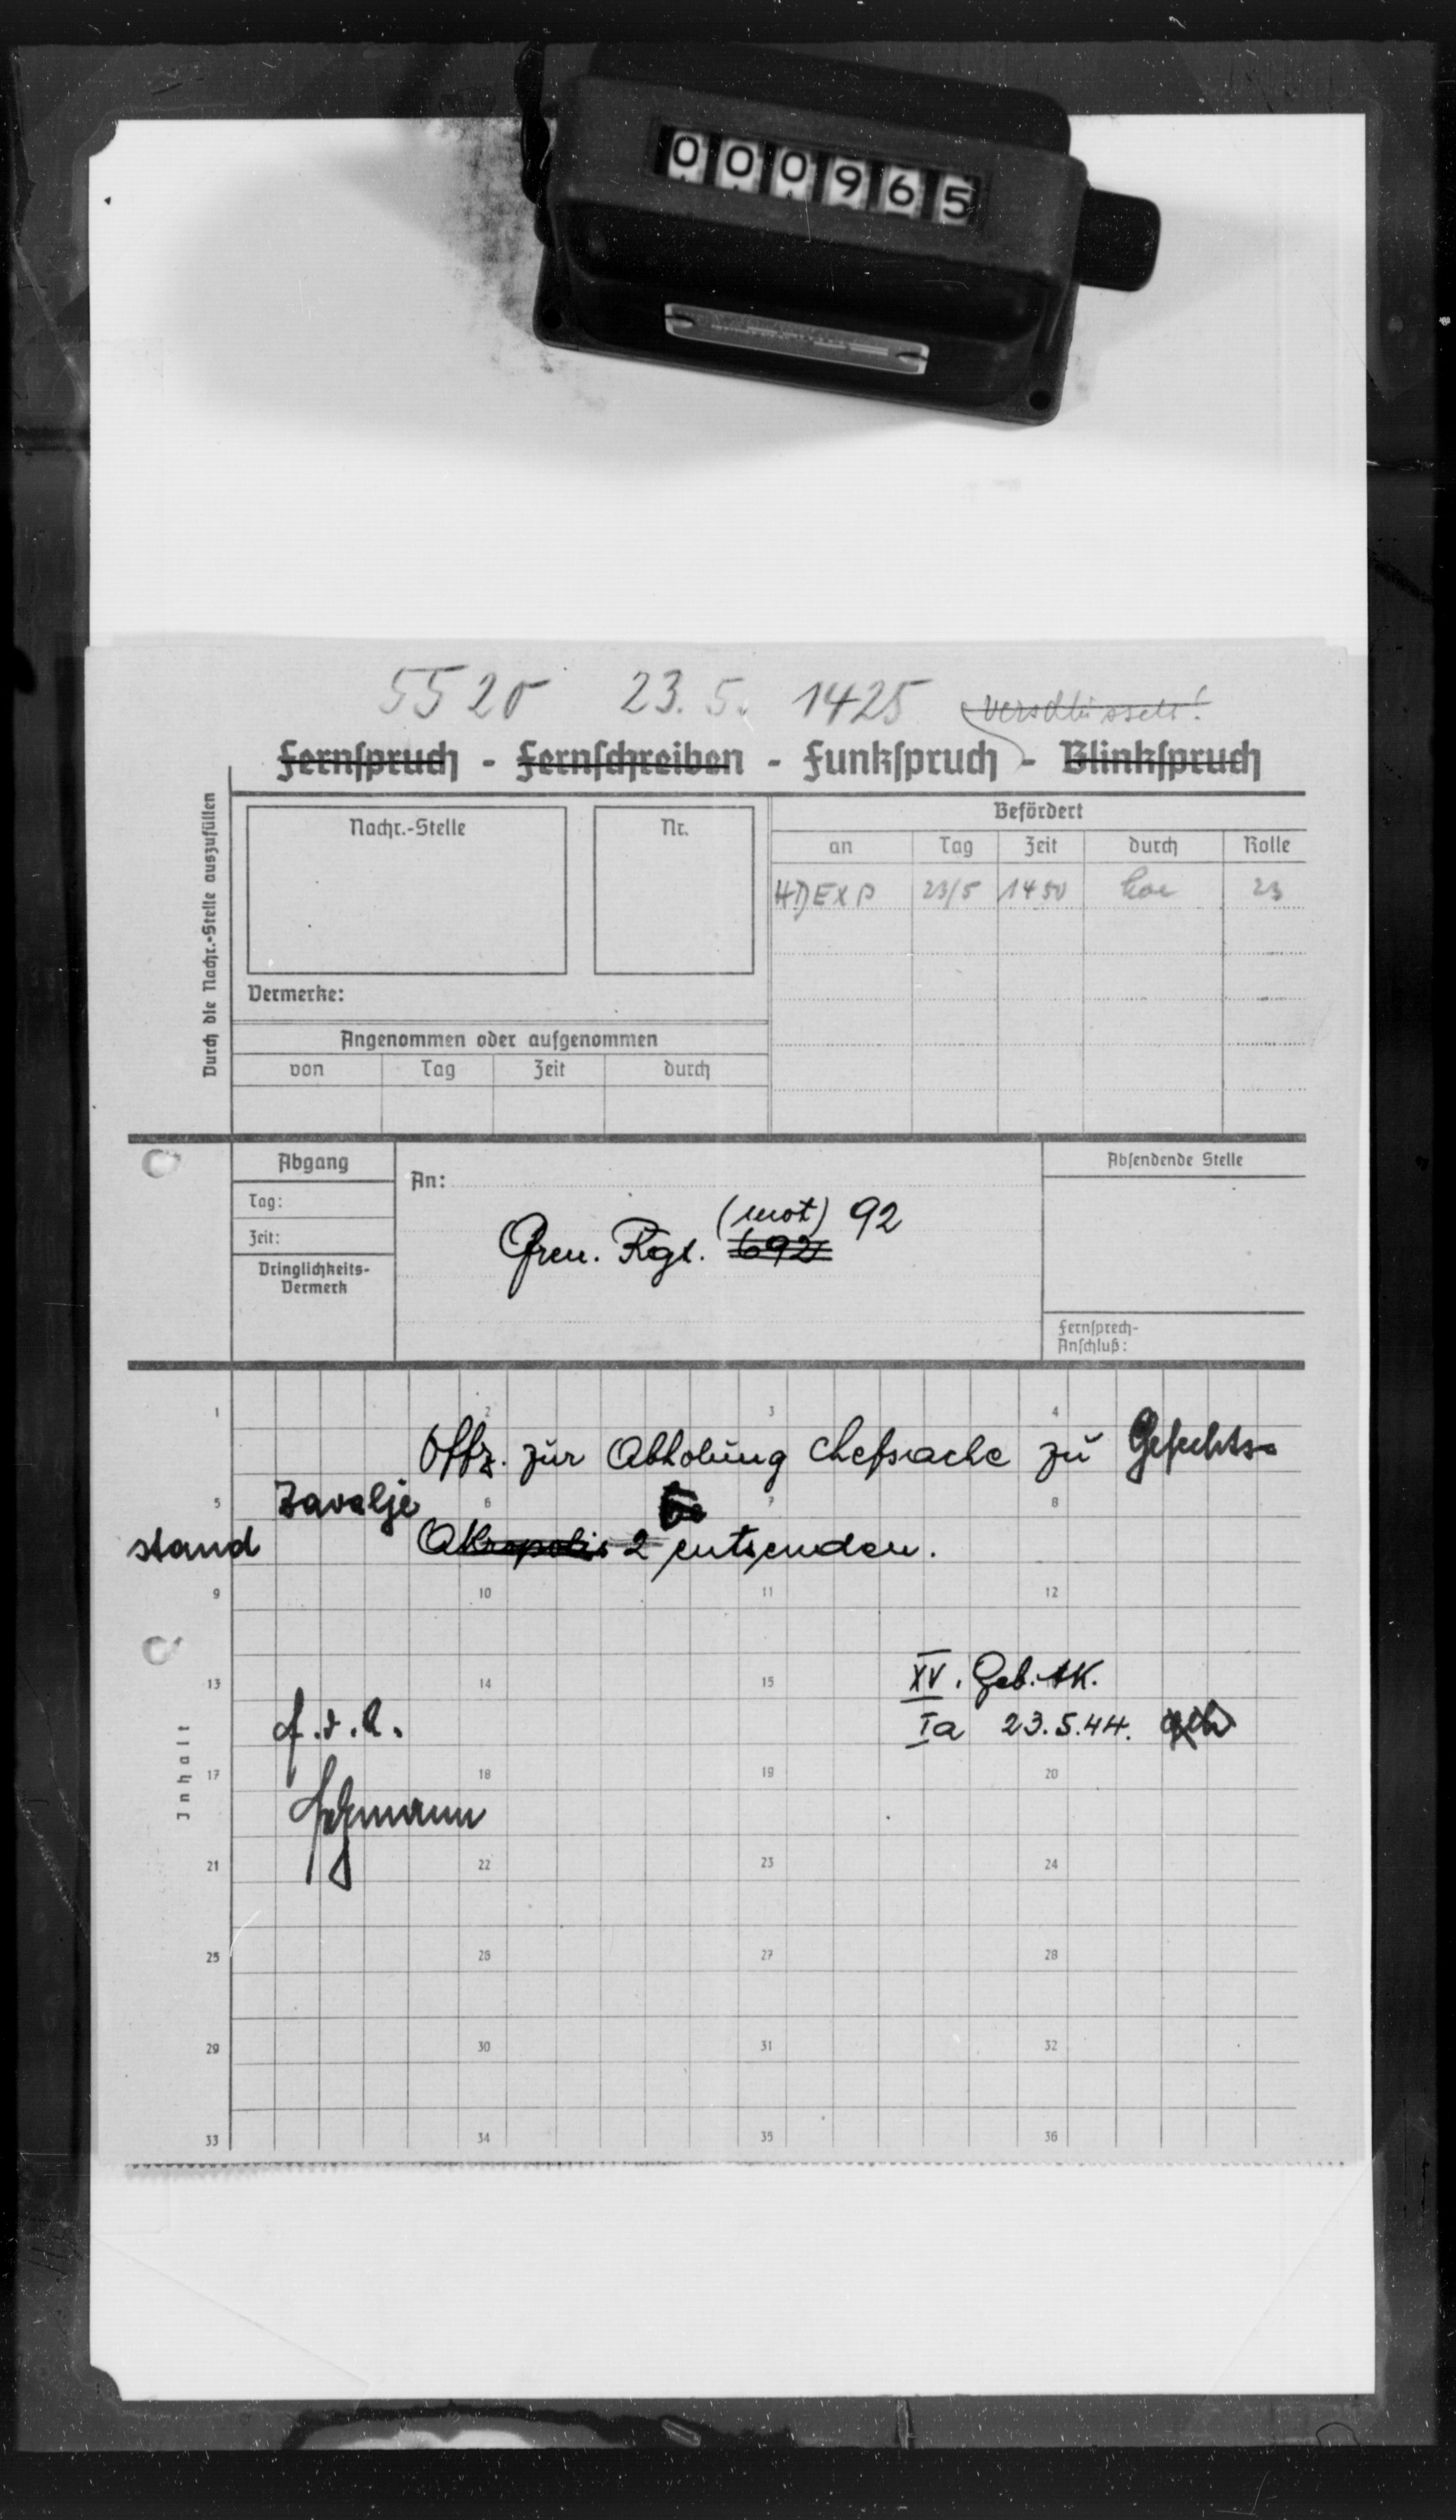 000965
5520 23.5. 1425 verschlüsseln!
Fernspruch - Fernschreiben - Funkspruch - Blinkspruch
Durch die Nachr.-Stelle auszufüllen
Nachr.-Stelle Nr.
Befördert
an Tag Zeit durch Rolle
HDEXP 23/5 1450 23
Vermerke:
Angenommen oder aufgenommen
von Tag Zeit durch
Abgang
Tag:
Zeit:
Dringlichkeits-
Vermerk
An:
(mot) 92
Gren. Rgt. 692
Absendende Stelle
Fernsprech-
Anschluß:
1 2 3 4
Offz. zur Abholung Chefsache zu Gefechts-
5 6 7 8
Zavalje
stand Akropolis 2 entsenden.
9 10 11 12
XV. Geb. AK.
13 14 15
f.d.R. Ia 23.5.44.
Inhalt
17 18 19 20
21 22 23 24
25 26 27 28
29 30 31 32
33 34 35 36